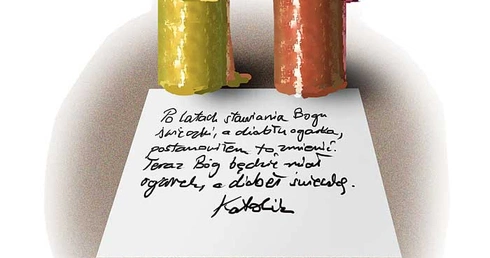 Po latach stawiania Bogu
świeczki, a diabłu ogarka,
postanowiłem to zmienić.
Teraz Bóg będzie miał
ogarek, a diabeł świeczkę.
Katolik